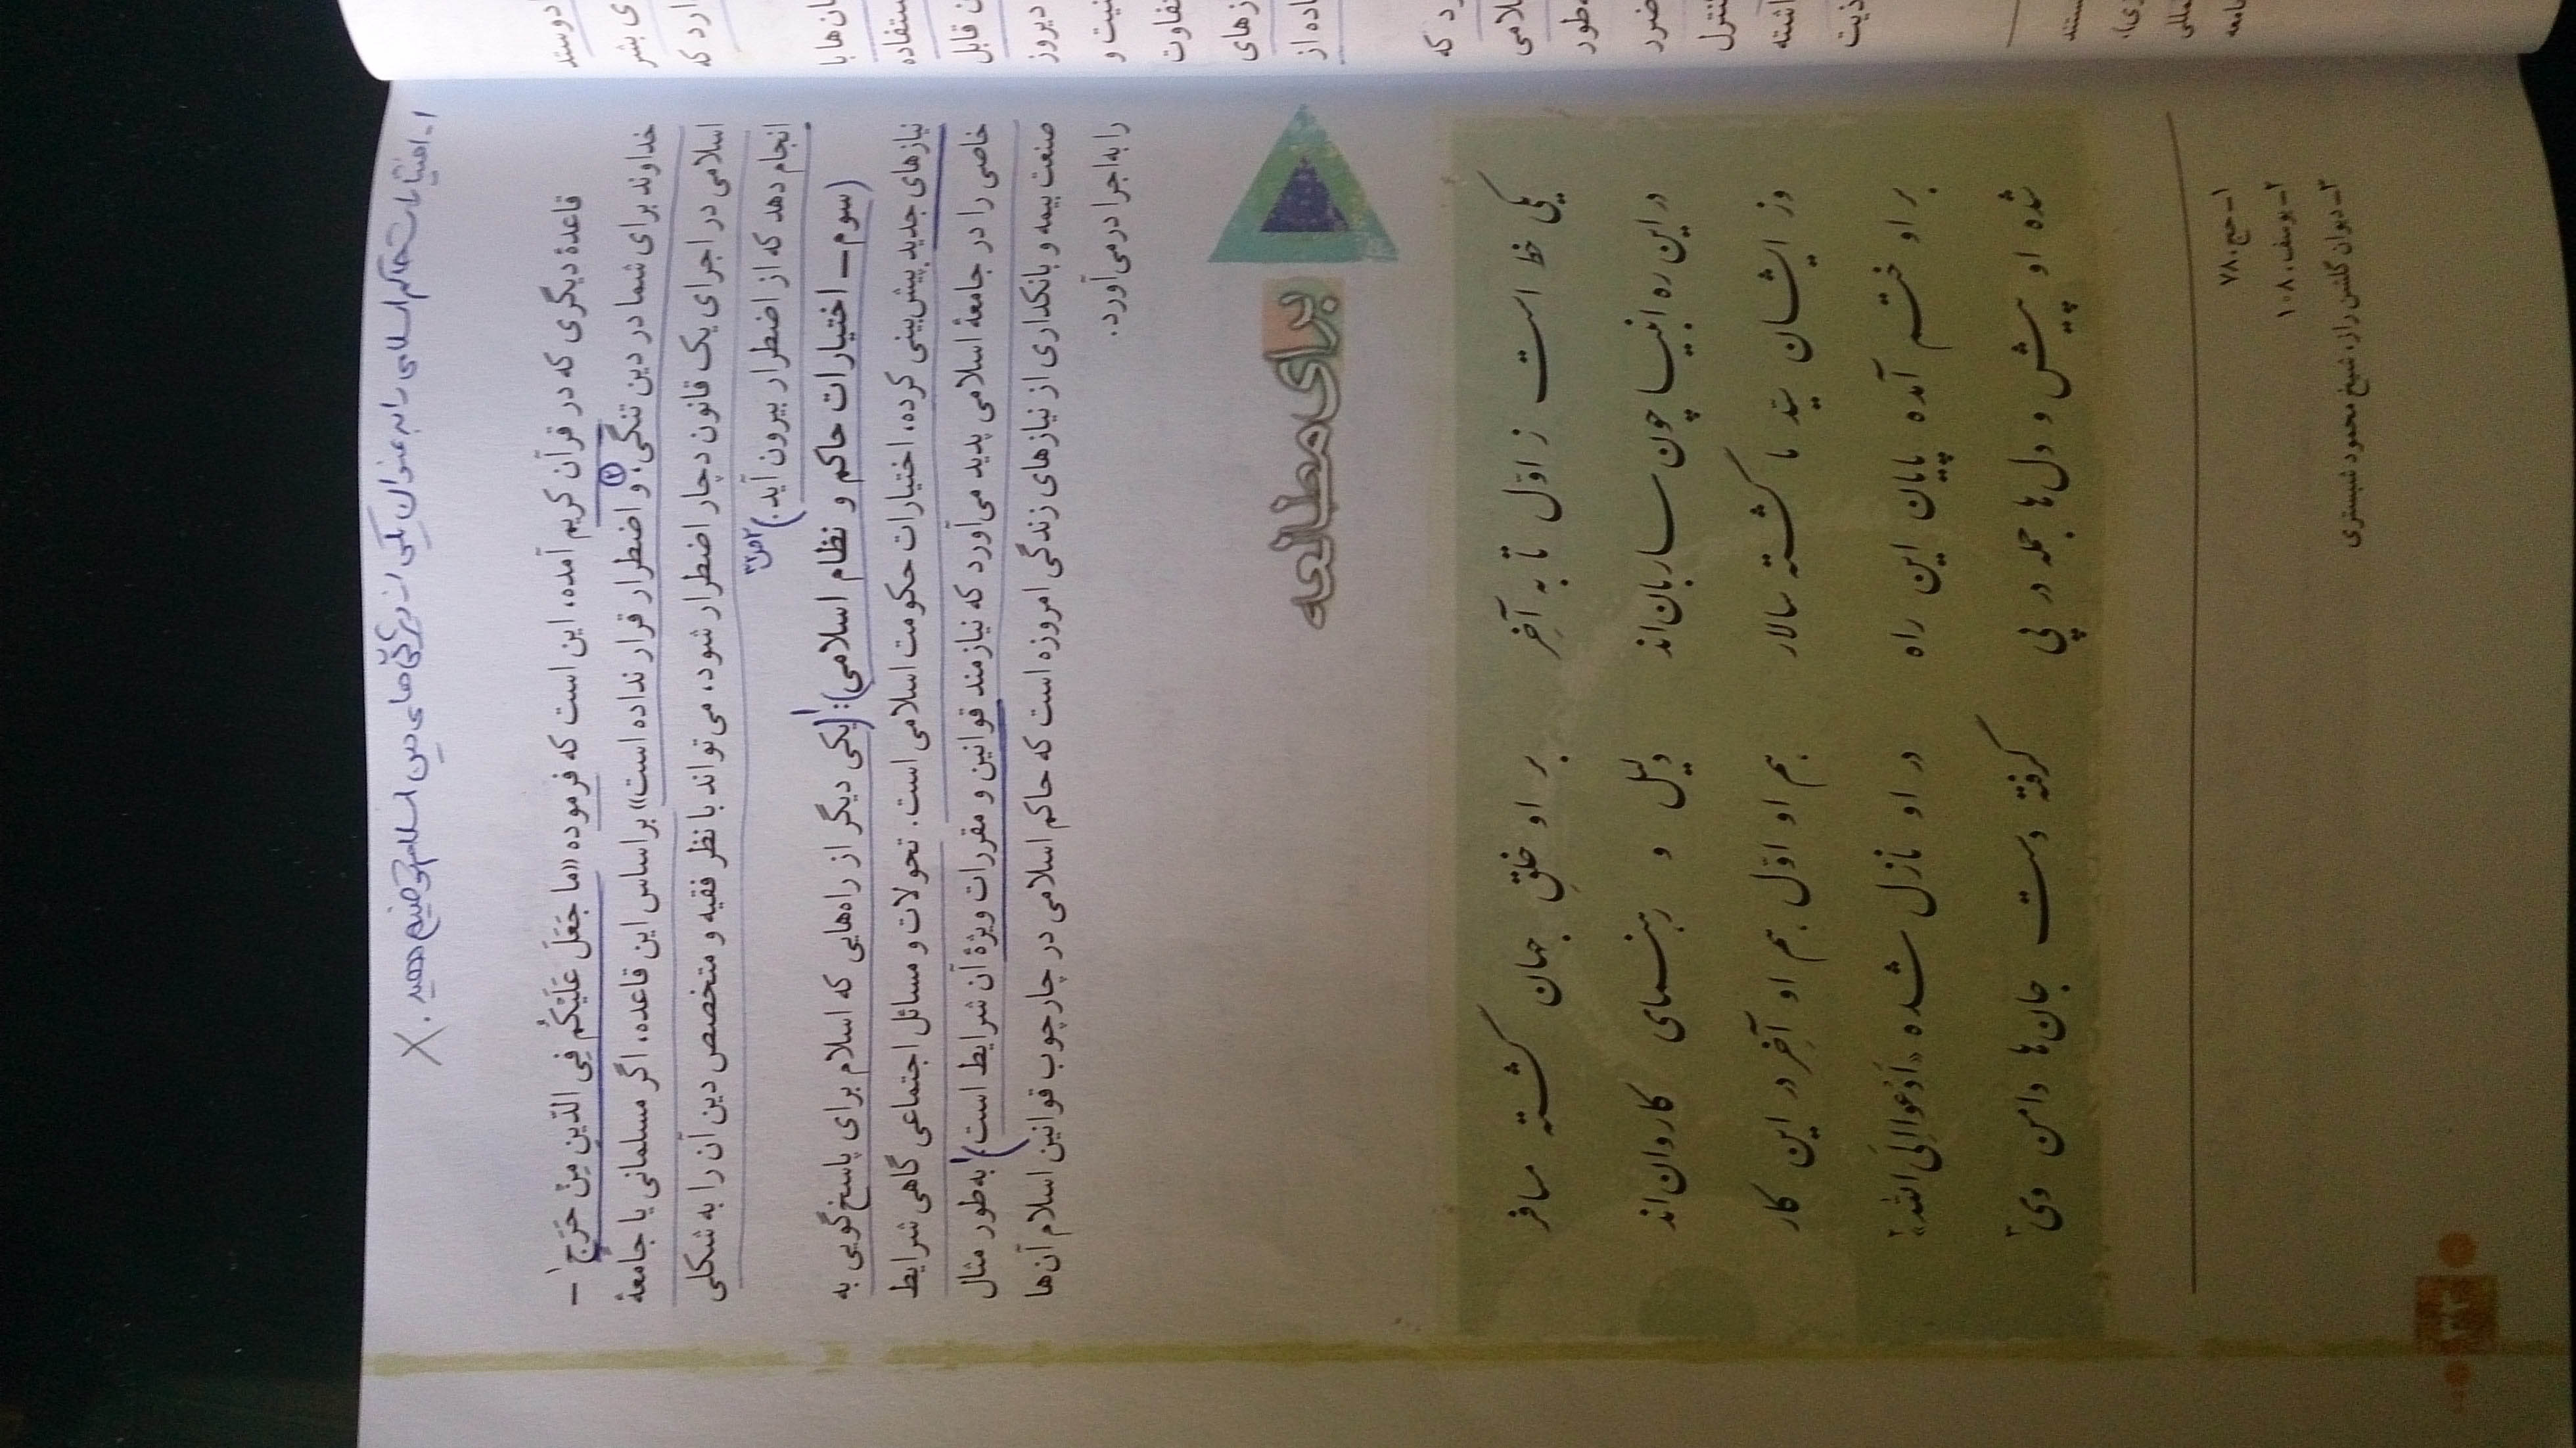 ۱- اختیارات حاکم اسلامی را به عنوان یکی از ویژگی های دین اسلام توضیح دهید. X
قاعدهٔ دیگری که در قرآن کریم آمده، این است که فرموده «ما جَعَلَ عَلَیْکُم فِی الدّینِ مِنْ حَرَج۱ –
خداوند برای شما در دین تنگی؛ و اضطرار قرار نداده است» براساس این قاعده، اگر مسلمانی یا جامعهٔ
اسلامی در اجرای یک قانون دچار اضطرار شود، می‌تواند با نظر فقیه و متخصص دین آن را به شکلی
انجام دهد که از اضطرار بیرون آید.)
(سوم – اختیارات حاکم و نظام اسلامی): (یکی دیگر از راه‌هایی که اسلام برای پاسخ‌گویی به
نیازهای جدید پیش‌بینی کرده، اختیارات حکومت اسلامی است. تحولات و مسائل اجتماعی گاهی شرایط
خاصی را در جامعهٔ اسلامی پدید می‌آورد که نیازمند قوانین و مقررات ویژهٔ آن شرایط است.) به‌طور مثال
صنعت بیمه و بانکداری از نیازهای زندگی امروزه است که حاکم اسلامی در چارچوب قوانین اسلام آن‌ها
را به اجرا درمی‌آورد.
برای مطالعه
یکی خط است ز اوّل تا به آخِر بر او خلقِ جهان گشته مسافر
در این ره انبیا چون ساربان‌اند دلیل و رهنمای کاروان‌اند
وز ایشان سیّد ما گشته سالار هم او اوّل هم او آخِر در این کار
بر او ختم آمده پایان این راه در او نازل شده «اَدْعوا اِلَی الله»۲
شده او پیش و دل‌ها جمله در پی گرفته دست جان‌ها دامن وی۳
۱– حج، ۷۸
۲– یوسف، ۱۰۸
۳– دیوان گلشن راز، شیخ محمود شبستری